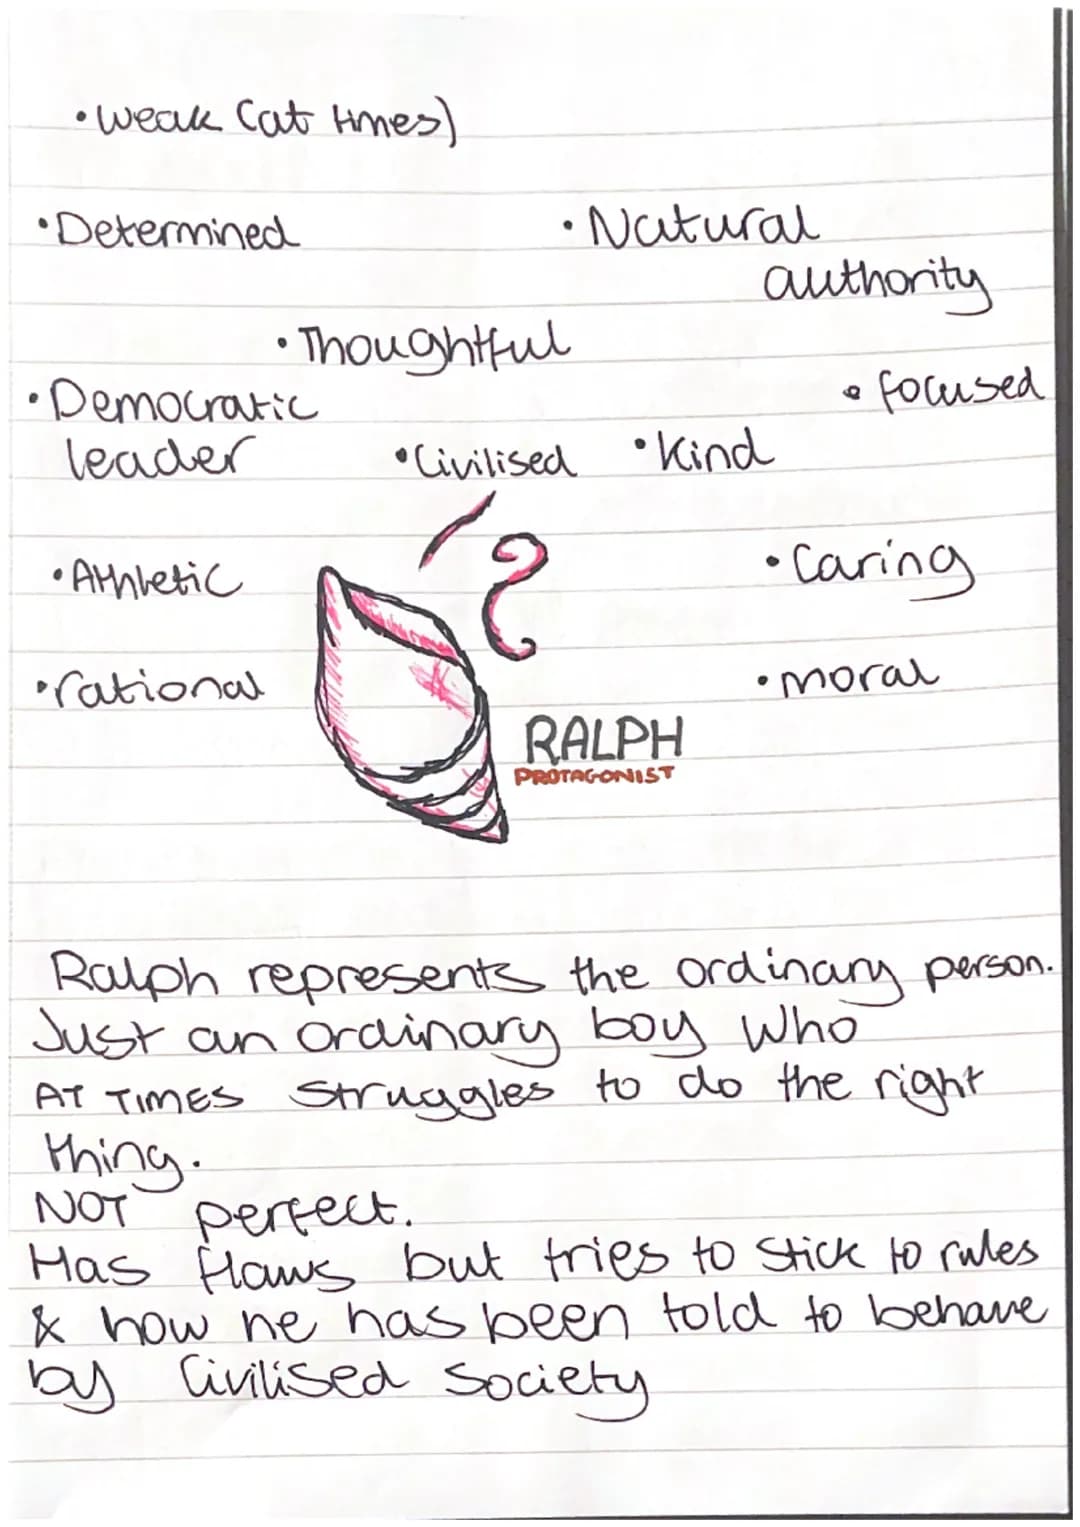 • Weak (at times)
• Determined
• Natural
authority
• Thoughtful
• Democratic
leader
• focused
• Civilised
• Kind
• Athletic
• Caring
• rational
• moral
RALPH
PROTAGONIST
Ralph represents the ordinary person.
Just an ordinary boy who
AT TIMES struggles to do the right
thing.
NOT perfect.
Has flaws but tries to stick to rules
& how he has been told to behave
by Civilised Society